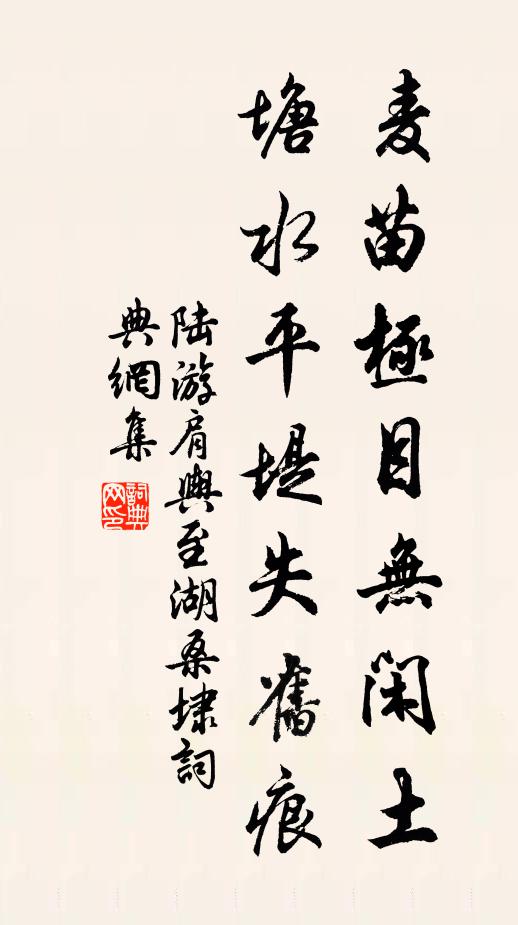 麦苗極目無閑土
塘水平堤失舊痕
陆游肩輿至湖桑埭詞
典網集
詞典网印